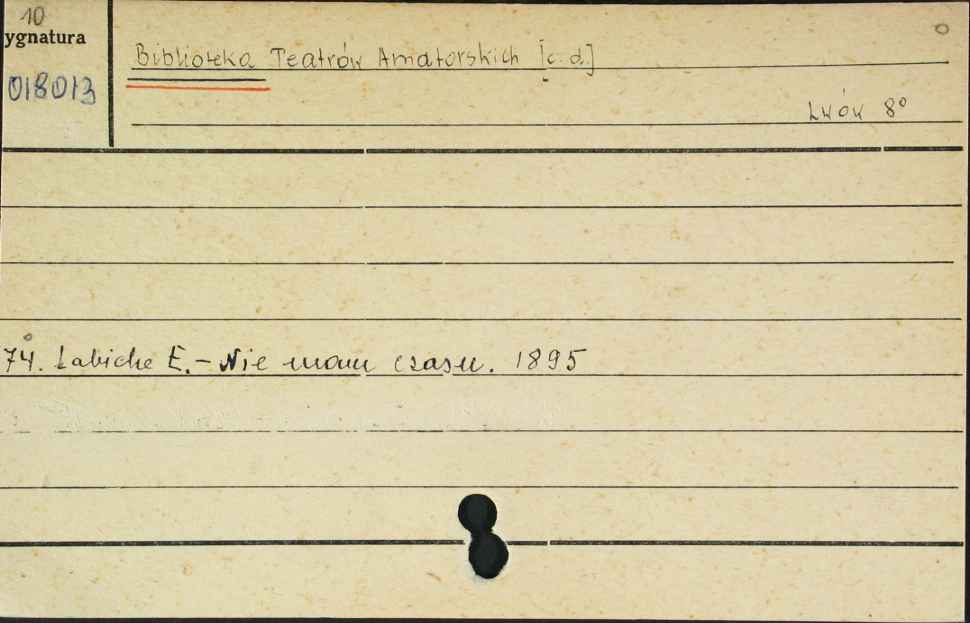 10
ygnatura
018013
Biblioteka Teatrów Amatorskich [c. d.]
Lwów 8°
74. Labiche E. - Nie mam czasu. 1895